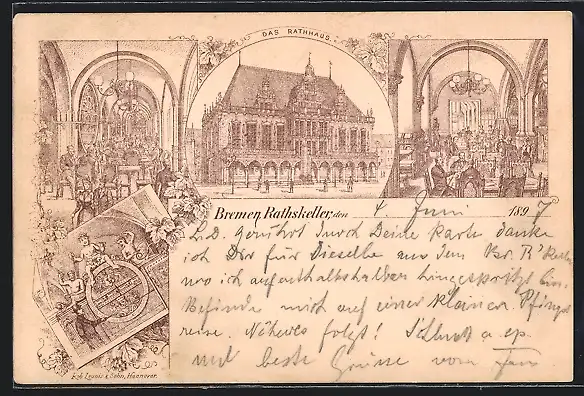 DAS RATHHAUS.
Bremen, Rathskeller, den 4. Juni 1897
L.D. gerührt durch Deine Karte danke
ich Dir für Dieselbe aus dem Br. R'keller
wo ich aufenthaltshalber hingespritzt bin.
Befinde mich auf einer kleinen Pfingst
reise. Näheres folgt!
mit beste Grüsse vom
& Sohn, Hannover.